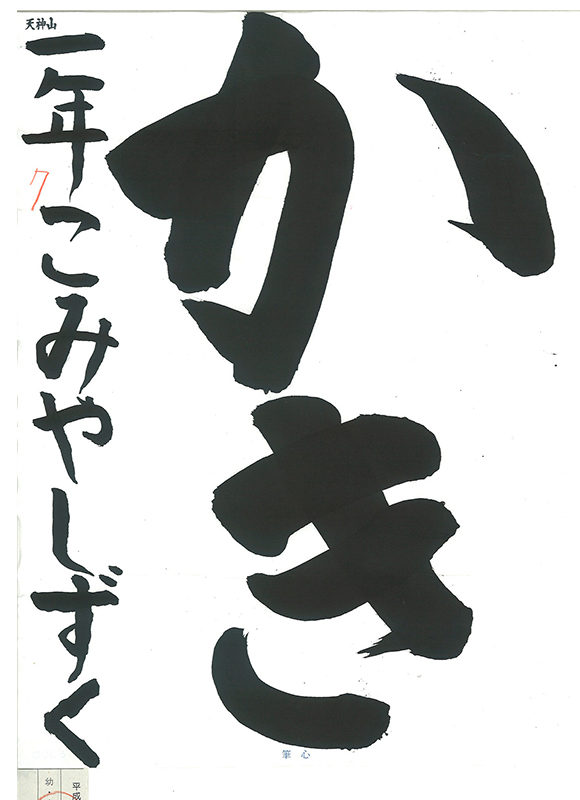 かき
天神山
一年こみやしずく
ク
筆心
平成
幼・